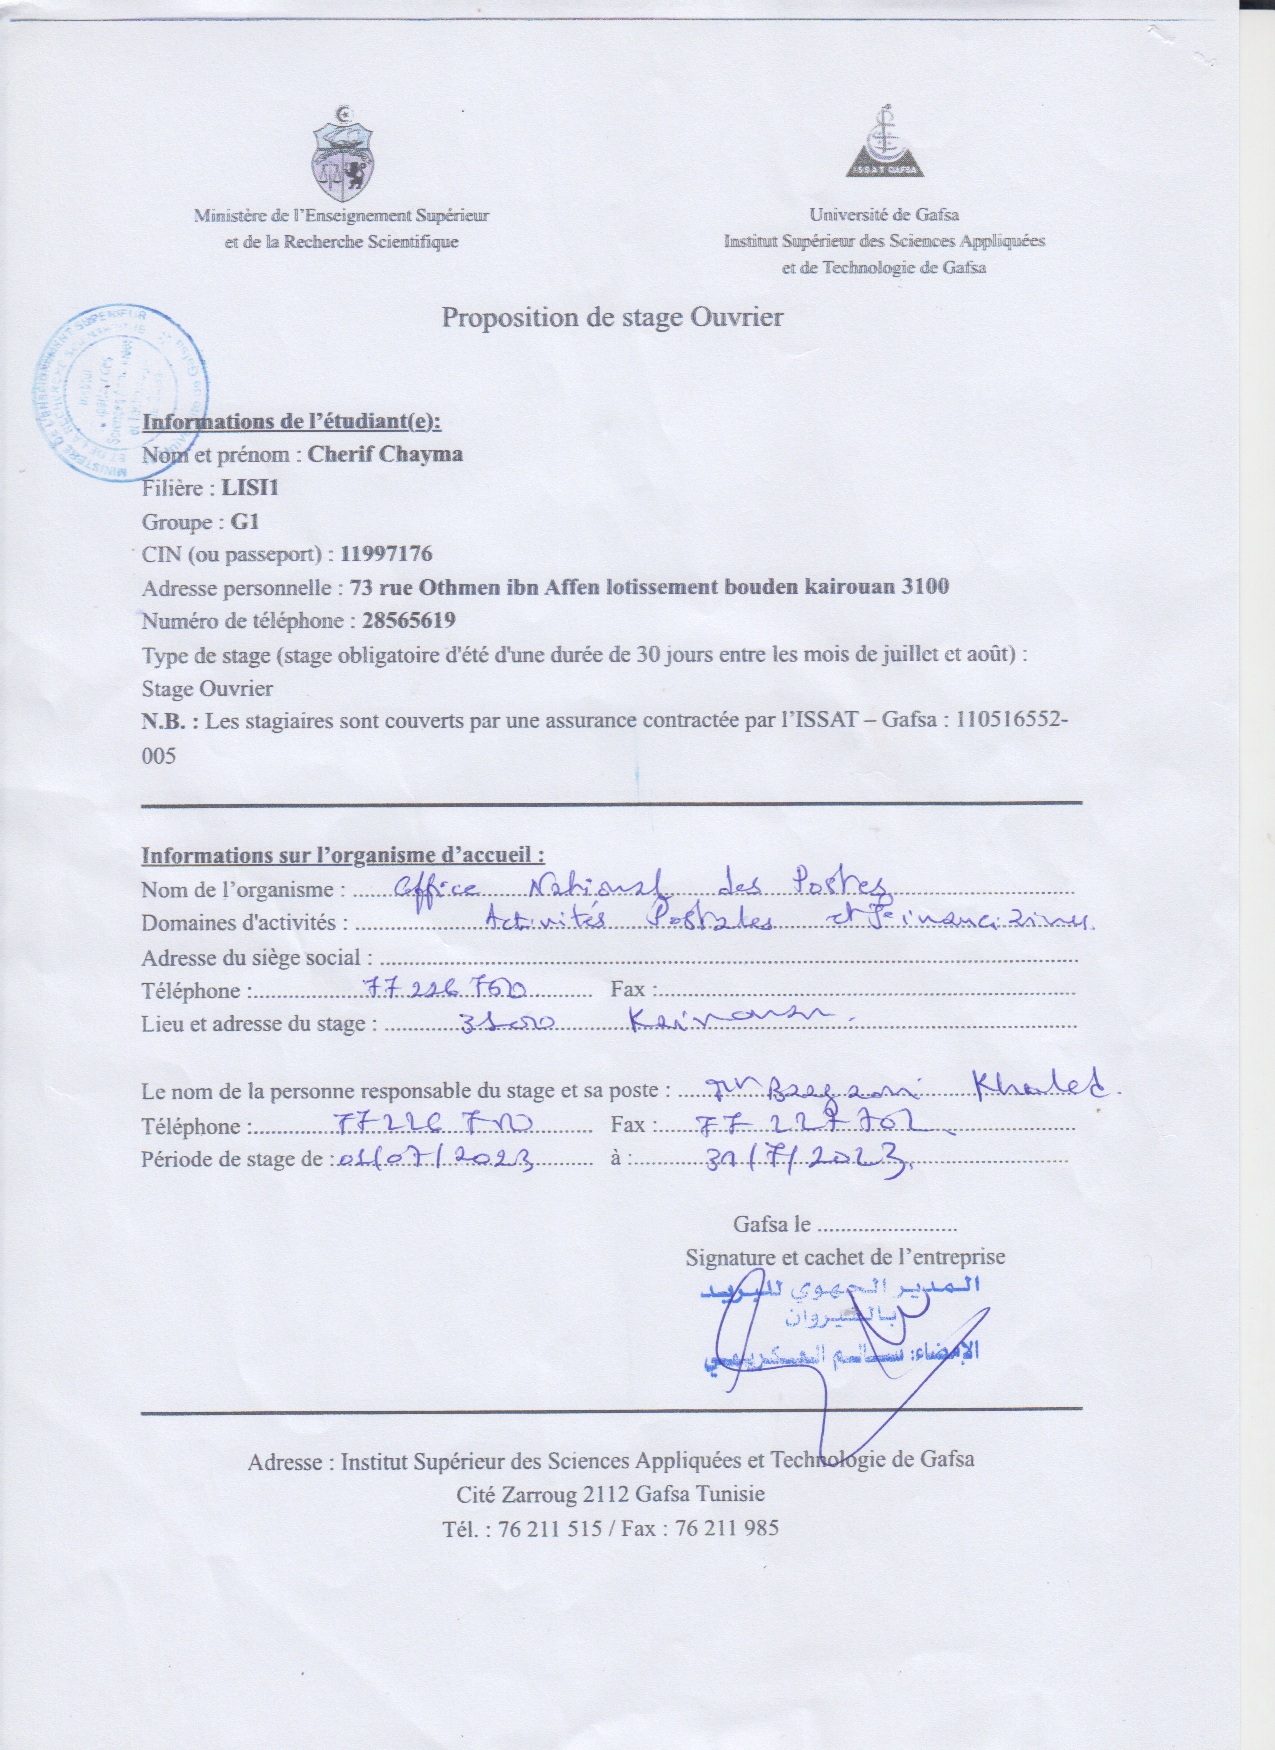 ISSAT GAFSA
Ministère de l'Enseignement Supérieur
et de la Recherche Scientifique
Université de Gafsa
Institut Supérieur des Sciences Appliquées
et de Technologie de Gafsa
Proposition de stage Ouvrier
MINISTERE DE L'ENSEIGNEMENT SUPERIEUR
ET DE LA RECHERCHE
Informations de l'étudiant(e):
Nom et prénom : Cherif Chayma
Filière : LISI1
Groupe : G1
CIN (ou passeport) : 11997176
Adresse personnelle : 73 rue Othmen ibn Affen lotissement bouden kairouan 3100
Numéro de téléphone : 28565619
Type de stage (stage obligatoire d'été d'une durée de 30 jours entre les mois de juillet et août) :
Stage Ouvrier
N.B. : Les stagiaires sont couverts par une assurance contractée par l'ISSAT – Gafsa : 110516552-
005
Informations sur l'organisme d'accueil :
Nom de l'organisme : Office National des Postes
Domaines d'activités : Activités Postales et Financières.
Adresse du siège social :
Téléphone : 77 226 700 Fax :
Lieu et adresse du stage : 3100 Kairouan.
Le nom de la personne responsable du stage et sa poste : Khaled.
Téléphone : 77 226 700 Fax : 77 227 702
Période de stage de : 01/07/2023 à : 31/7/2023
Gafsa le
Signature et cachet de l'entreprise
المدير الجهوي للبريد
بالقيروان
الإمضاء: سالم
Adresse : Institut Supérieur des Sciences Appliquées et Technologie de Gafsa
Cité Zarroug 2112 Gafsa Tunisie
Tél. : 76 211 515 / Fax : 76 211 985